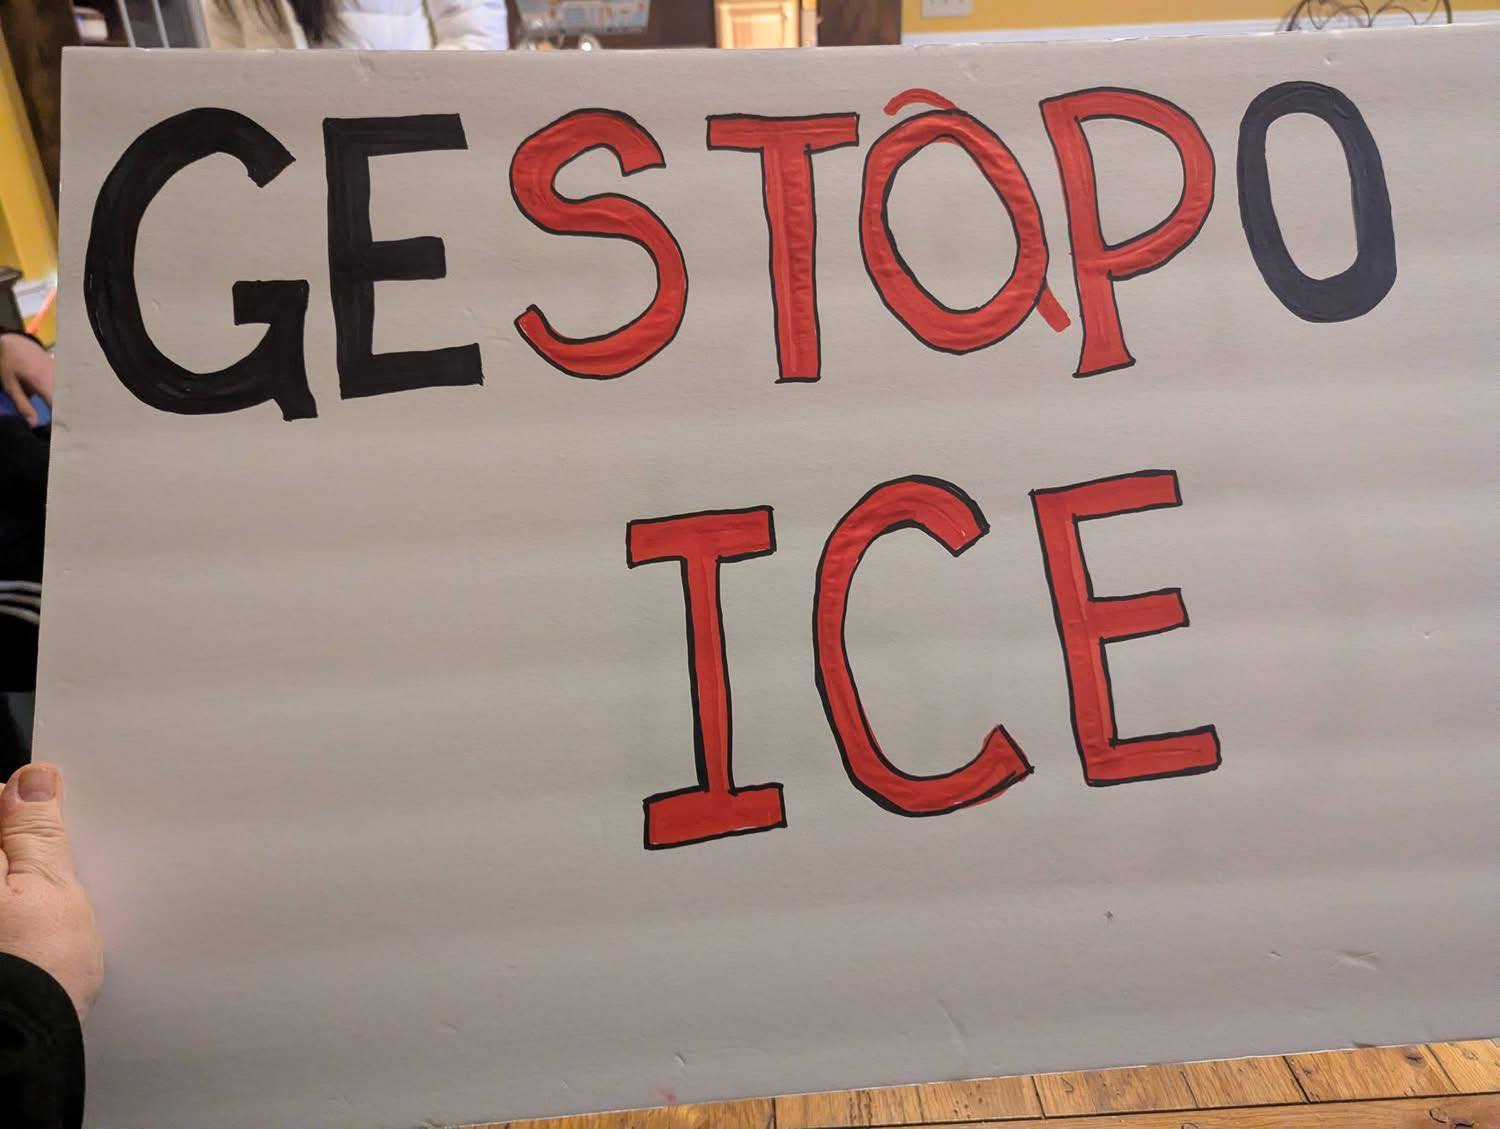 GESTOPO
ICE